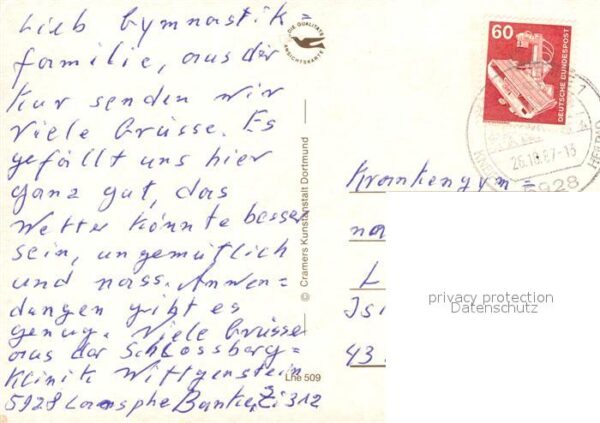 Lieb Gymnastik=
familie, aus der
Kur senden wir
viele Grüsse. Es
gefällt uns hier
ganz gut, das
Wetter könnte besser
sein, ungemütlich
und nass. Anwen=
dungen gibt es
genug. Viele Grüsse
aus der Schlossberg=
Klinik Wittgenstein
5928 Laasphe Zi 312
DIE QUALITÄTS
ANSICHTSKARTE
© Cramers Kunstanstalt Dortmund
Lhe 509
60
DEUTSCHE BUNDESPOST
26.10.87-15
5928
Krankengym=
na
L
Isi
43
privacy protection
Datenschutz